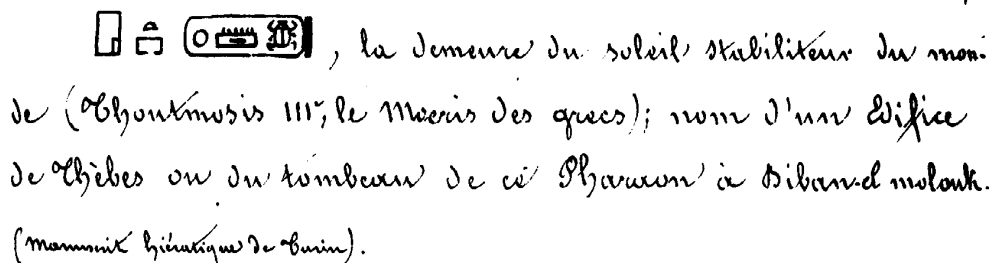 𓉗𓏏𓉐 𓍹𓇳𓏠𓆣𓍺, la demeure du soleil stabiliteur du mon-
de (Thoutmosis III^e, le Moeris des grecs); nom d'un Edifice
de Thèbes ou du tombeau de ce Pharaon à Biban-el molouk.
(Manuscrit hiératique de Turin).